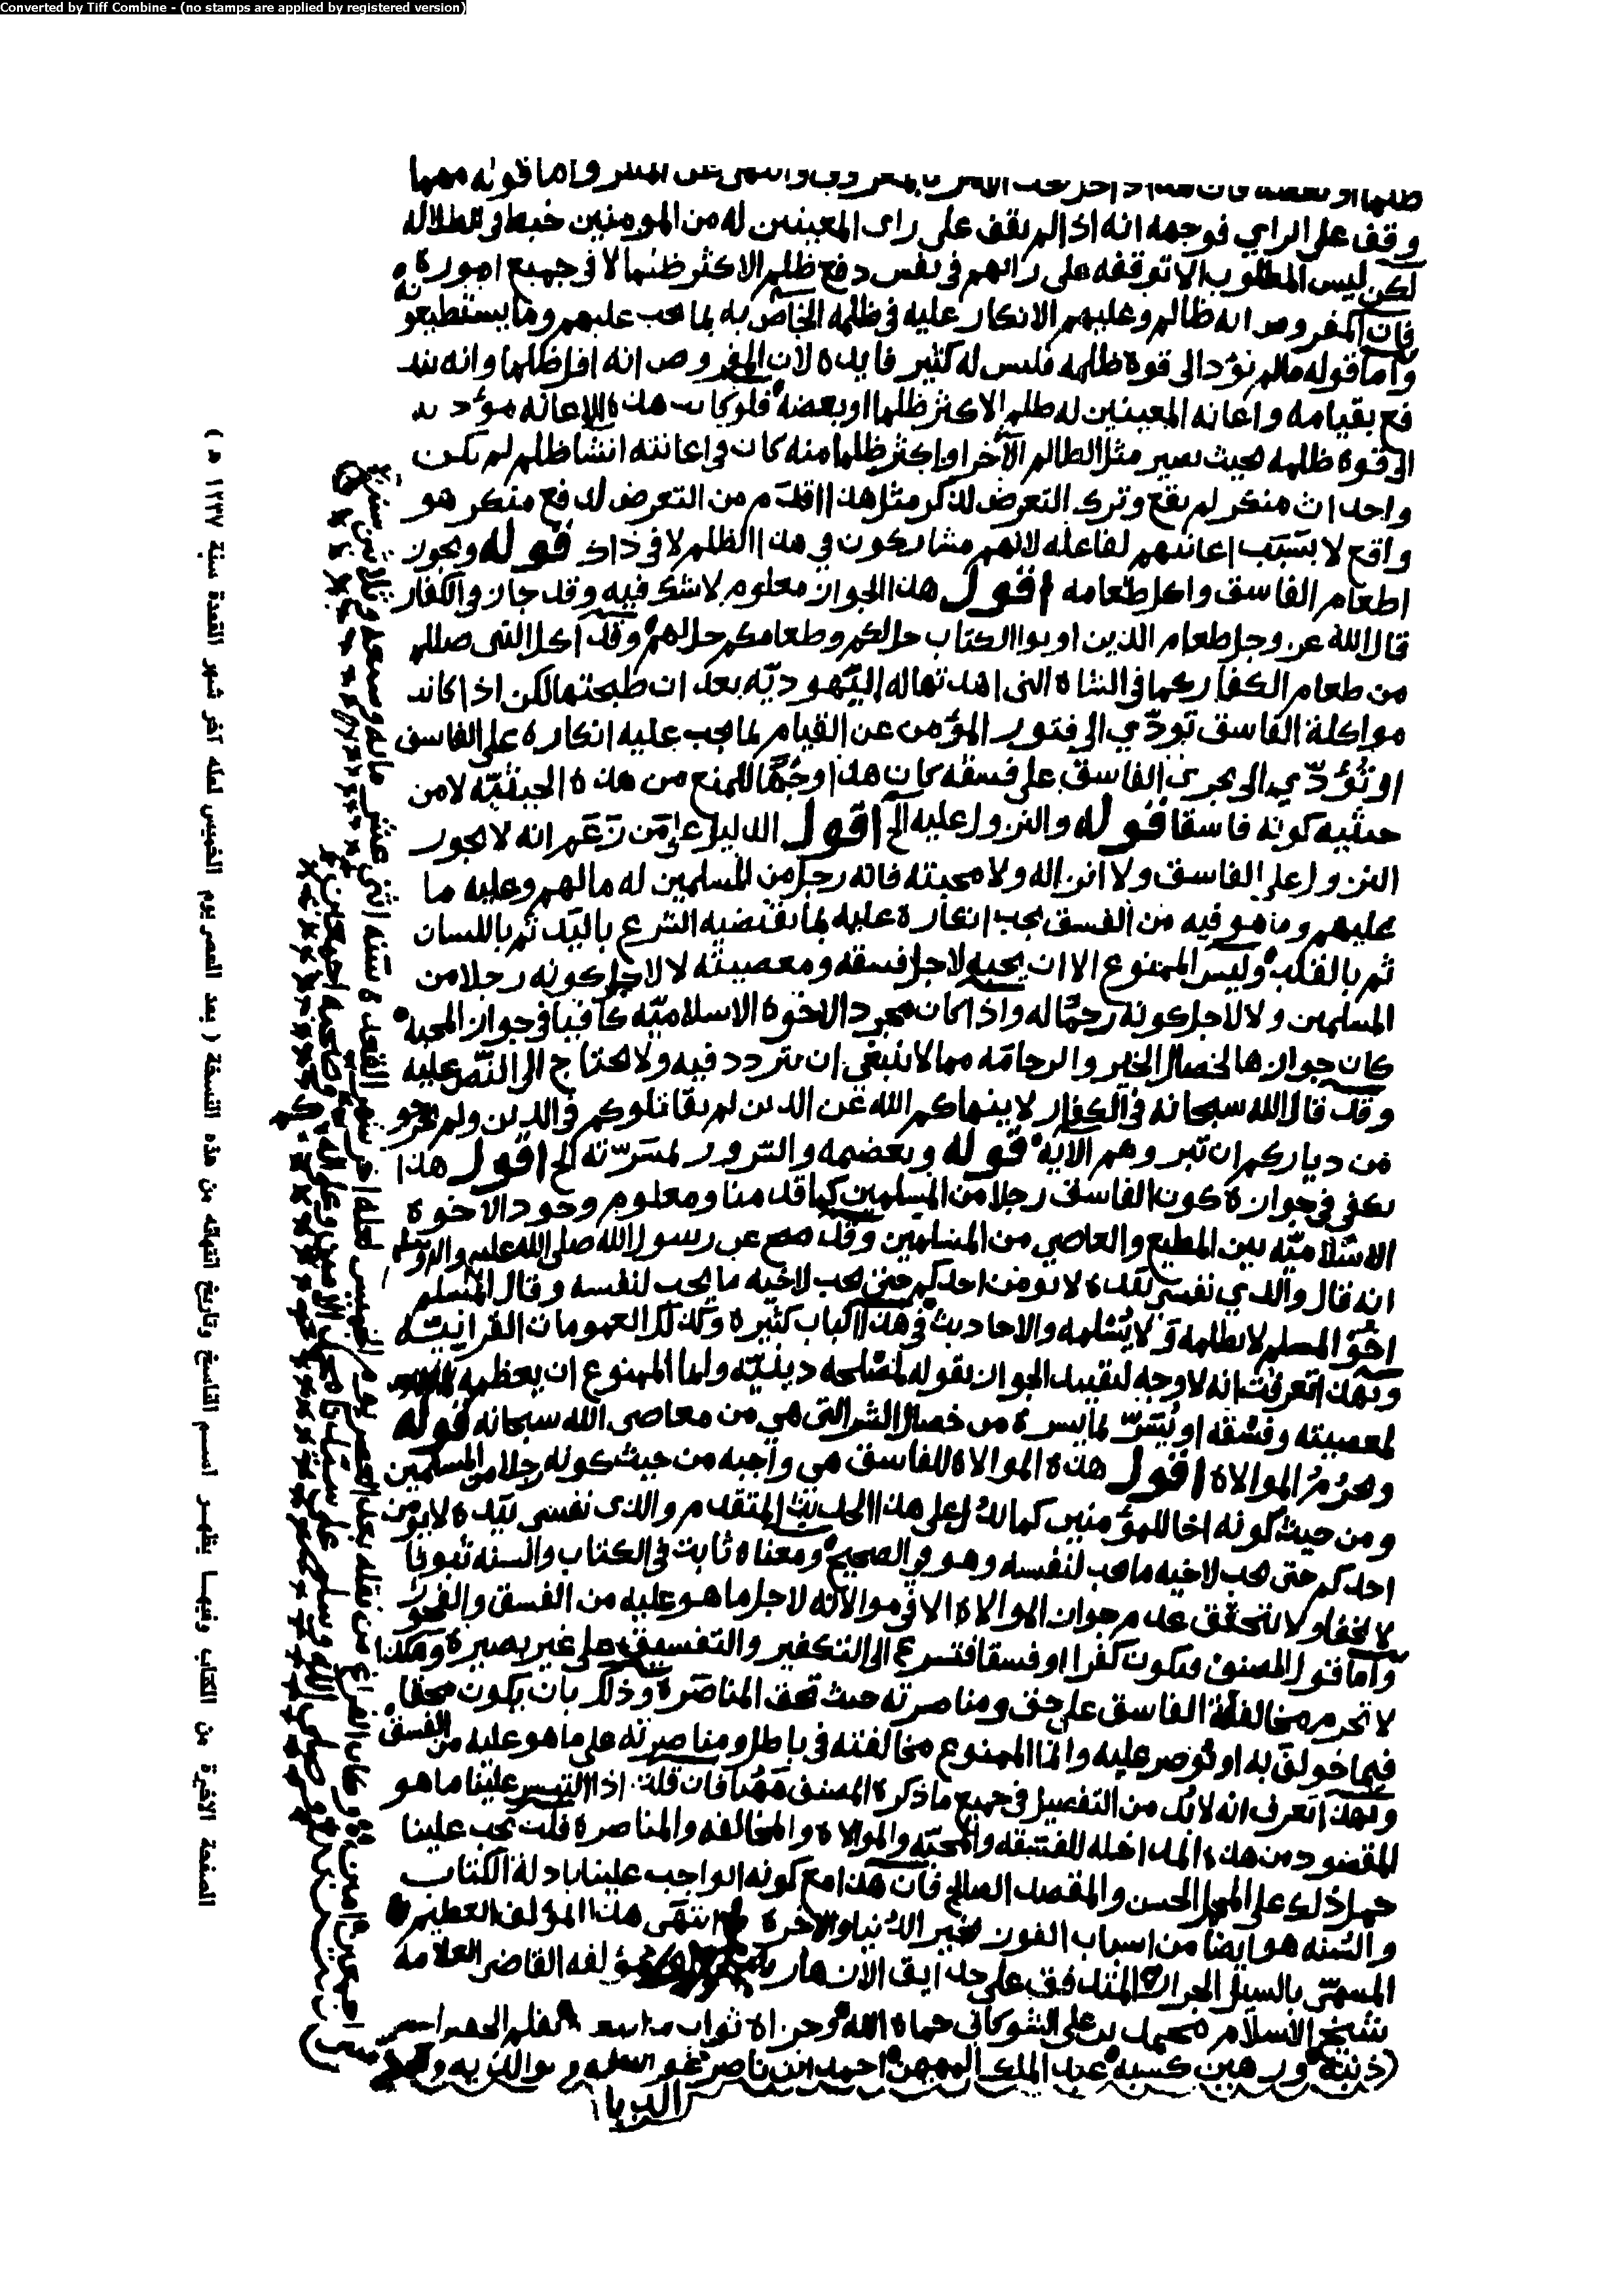 Converted by Tiff Combine - (no stamps are applied by registered version)
ظلما او بعضه فان هذا داخل تحت الامر بالمعروف والنهي عن المنكر واما قوله مهما
وقف على الراي فوجهه انه اذا لم يقف على راى المعينين له من المومنين خبط في
لكن ليس المطلوب الا توقفه على رائهم في نفس دفع ظلم الاكثر ظلما لا في جميع اموره
فان المفروض انه ظالم وعليهم الانكار عليه في ظلمه الخاص به بما يجب عليهم وما يستطيعونه
واما قوله مالم يؤد الى قوة ظلمه فليس له كثير فايده لان المفروض انه اقل ظلما وانه يند
فع بقيامه واعانه المعينين له ظلم الاكثر ظلما او بعضه فلو كانت هذه الاعانه مؤديه
الى قوة ظلمه بحيث يصير مثل الظالم الآخر او اكثر ظلما منه كان في اعانته انشا ظلم لم يكن
واحداث منكر لم يقع وترك التعرض لذكر مثل هذا اقدم من التعرض لدفع منكر هو
واقع لا بسبب اعانتهم لفاعله لانهم مشاركون في هذا الظلم لا في ذاك قوله ويجوز
اطعام الفاسق واكل طعامه اقول هذا الجواز معلوم لا شك فيه وقد جاز في الكفار
قال الله عز وجل طعام الذين اوتوا الكتاب حل لكم وطعامكم حل لهم وقد اكل النبى صللم
من طعام الكفار كما في الشاه التى اهدتها له اليهوديه بعد ان طبختها لكن اذا كانت
مواكلة الفاسق تودي الى فتور المؤمن عن القيام بما يجب عليه انكاره على الفاسق
او تؤدي الى تجرئ الفاسق على فسقه كان هذا وجها للمنع من هذه الحيثيه لا من
حيثيه كونه فاسقا قوله والنزول عليه الخ اقول الدليل على من زعم انه لا يجوز
النزول على الفاسق ولا انزاله ولا محبته فانه رجل من المسلمين له مالهم وعليه ما
عليهم وما هو فيه من الفسق يجب انكاره عليه بما يقتضيه الشرع باليد ثم باللسان
ثم بالقلب وليس الممنوع الا ان يحبه لاجل فسقه ومعصيته لا لاجل كونه رجلا من
المسلمين ولا لاجل كونه رحما له واذا كان مجرد الاخوة الاسلاميه كافيا في جواز المحبه
كان جوازها لخصال الخير والرحامه مما لا ينبغي ان يتردد فيه ولا يحتاج الى النص عليه
وقد قال الله سبحانه في الكفار لا ينهاكم الله عن الذين لم يقاتلوكم في الدين ولم يخرجو
من دياركم ان تبروهم الآيه قوله وتعظيمه والسرور لمسرته الخ اقول هذا
يكفي في جوازه كون الفاسق رجلا من المسلمين كما قدمنا ومعلوم وجود الاخوة
الاسلاميه بين المطيع والعاصي من المسلمين وقد صح عن رسول الله صلى الله عليه واله وسلم
انه قال والذي نفسي بيده لا يومن احدكم حتى يحب لاخيه ما يحب لنفسه وقال المسلم
اخو المسلم لا يظلمه ولا يسلمه والاحاديث في هذا الباب كثيرة وكذلك العمومات القرانيه
وبهذا تعرف انه لا وجه لتقييد الجواز بقوله لمصلحه دينيه وانما الممنوع ان يعظمه
لمعصيته وفسقه او يسر بما يسره من خصال الشر التى هي من معاصي الله سبحانه قوله
وتحرم الموالاة اقول هذه الموالاة للفاسق هي واجبه من حيث كونه رجلا من المسلمين
ومن حيث كونه اخا للمؤمنين كما يدل على هذا الحديث المتقدم والذى نفسى بيده لا يومن
احدكم حتى يحب لاخيه ما يحب لنفسه وهو في الصحيح ومعناه ثابت في الكتاب والسنه ثبوتا
لا يخفا ولا يتحقق عدم جواز الموالاة الا في موالاته لاجل ما هو عليه من الفسق والفجور
واما قول المصنف ويكون كفرا او فسقا فتسرع الى التكفير والتفسيق على غير بصيرة وهكذا
لا تحرم مخالفة الفاسق على حق ومناصرته حيث تحق المناصرة وذلك بان يكون محقا
فيما خولف به او نوصر عليه وانما الممنوع مخالفته في باطل ومناصرته على ما هو عليه من الفسق
وبهذا تعرف انه لا بد من التفصيل في جميع ما ذكره المصنف ههنا فان قلت اذا التبس علينا ما هو
المقصود من هذه المداخله للفسقه والمحبه والموالاه والمخالفه والمناصرة قلت يجب علينا
حمل ذلك على المحمل الحسن والمقصد الصالح فان هذا مع كونه الواجب علينا بادلة الكتاب
والسنه هو ايضا من اسباب الفوز بخير الدنيا والاخرة انتهى هذا المؤلف العظيم
المسمى بالسيل الجرار المتدفق على حدايق الازهار لمؤلفه القاضى العلامة
شيخ الاسلام محمد بن على الشوكاني حماه الله وجزاه ثواب بقلم الحقير اسير
ذنبه ورهين كسبه عبد الملك المهيمن احمد ابن ناصر غفر الله له ولوالديه
وكان الفراغ من نقله بعد العصر يوم الخميس لعله اخر شهر القعده سنه اثنى عشر مائه وسبعه وثلاثين سنة
الصفحة الاخيرة من الكتاب وفيها يظهر اسم الناسخ وتاريخ انتهائه من هذه النسخة ( بعد العصر يوم الخميس لعله آخر شهر القعدة سنة ١٢٣٧ هـ )